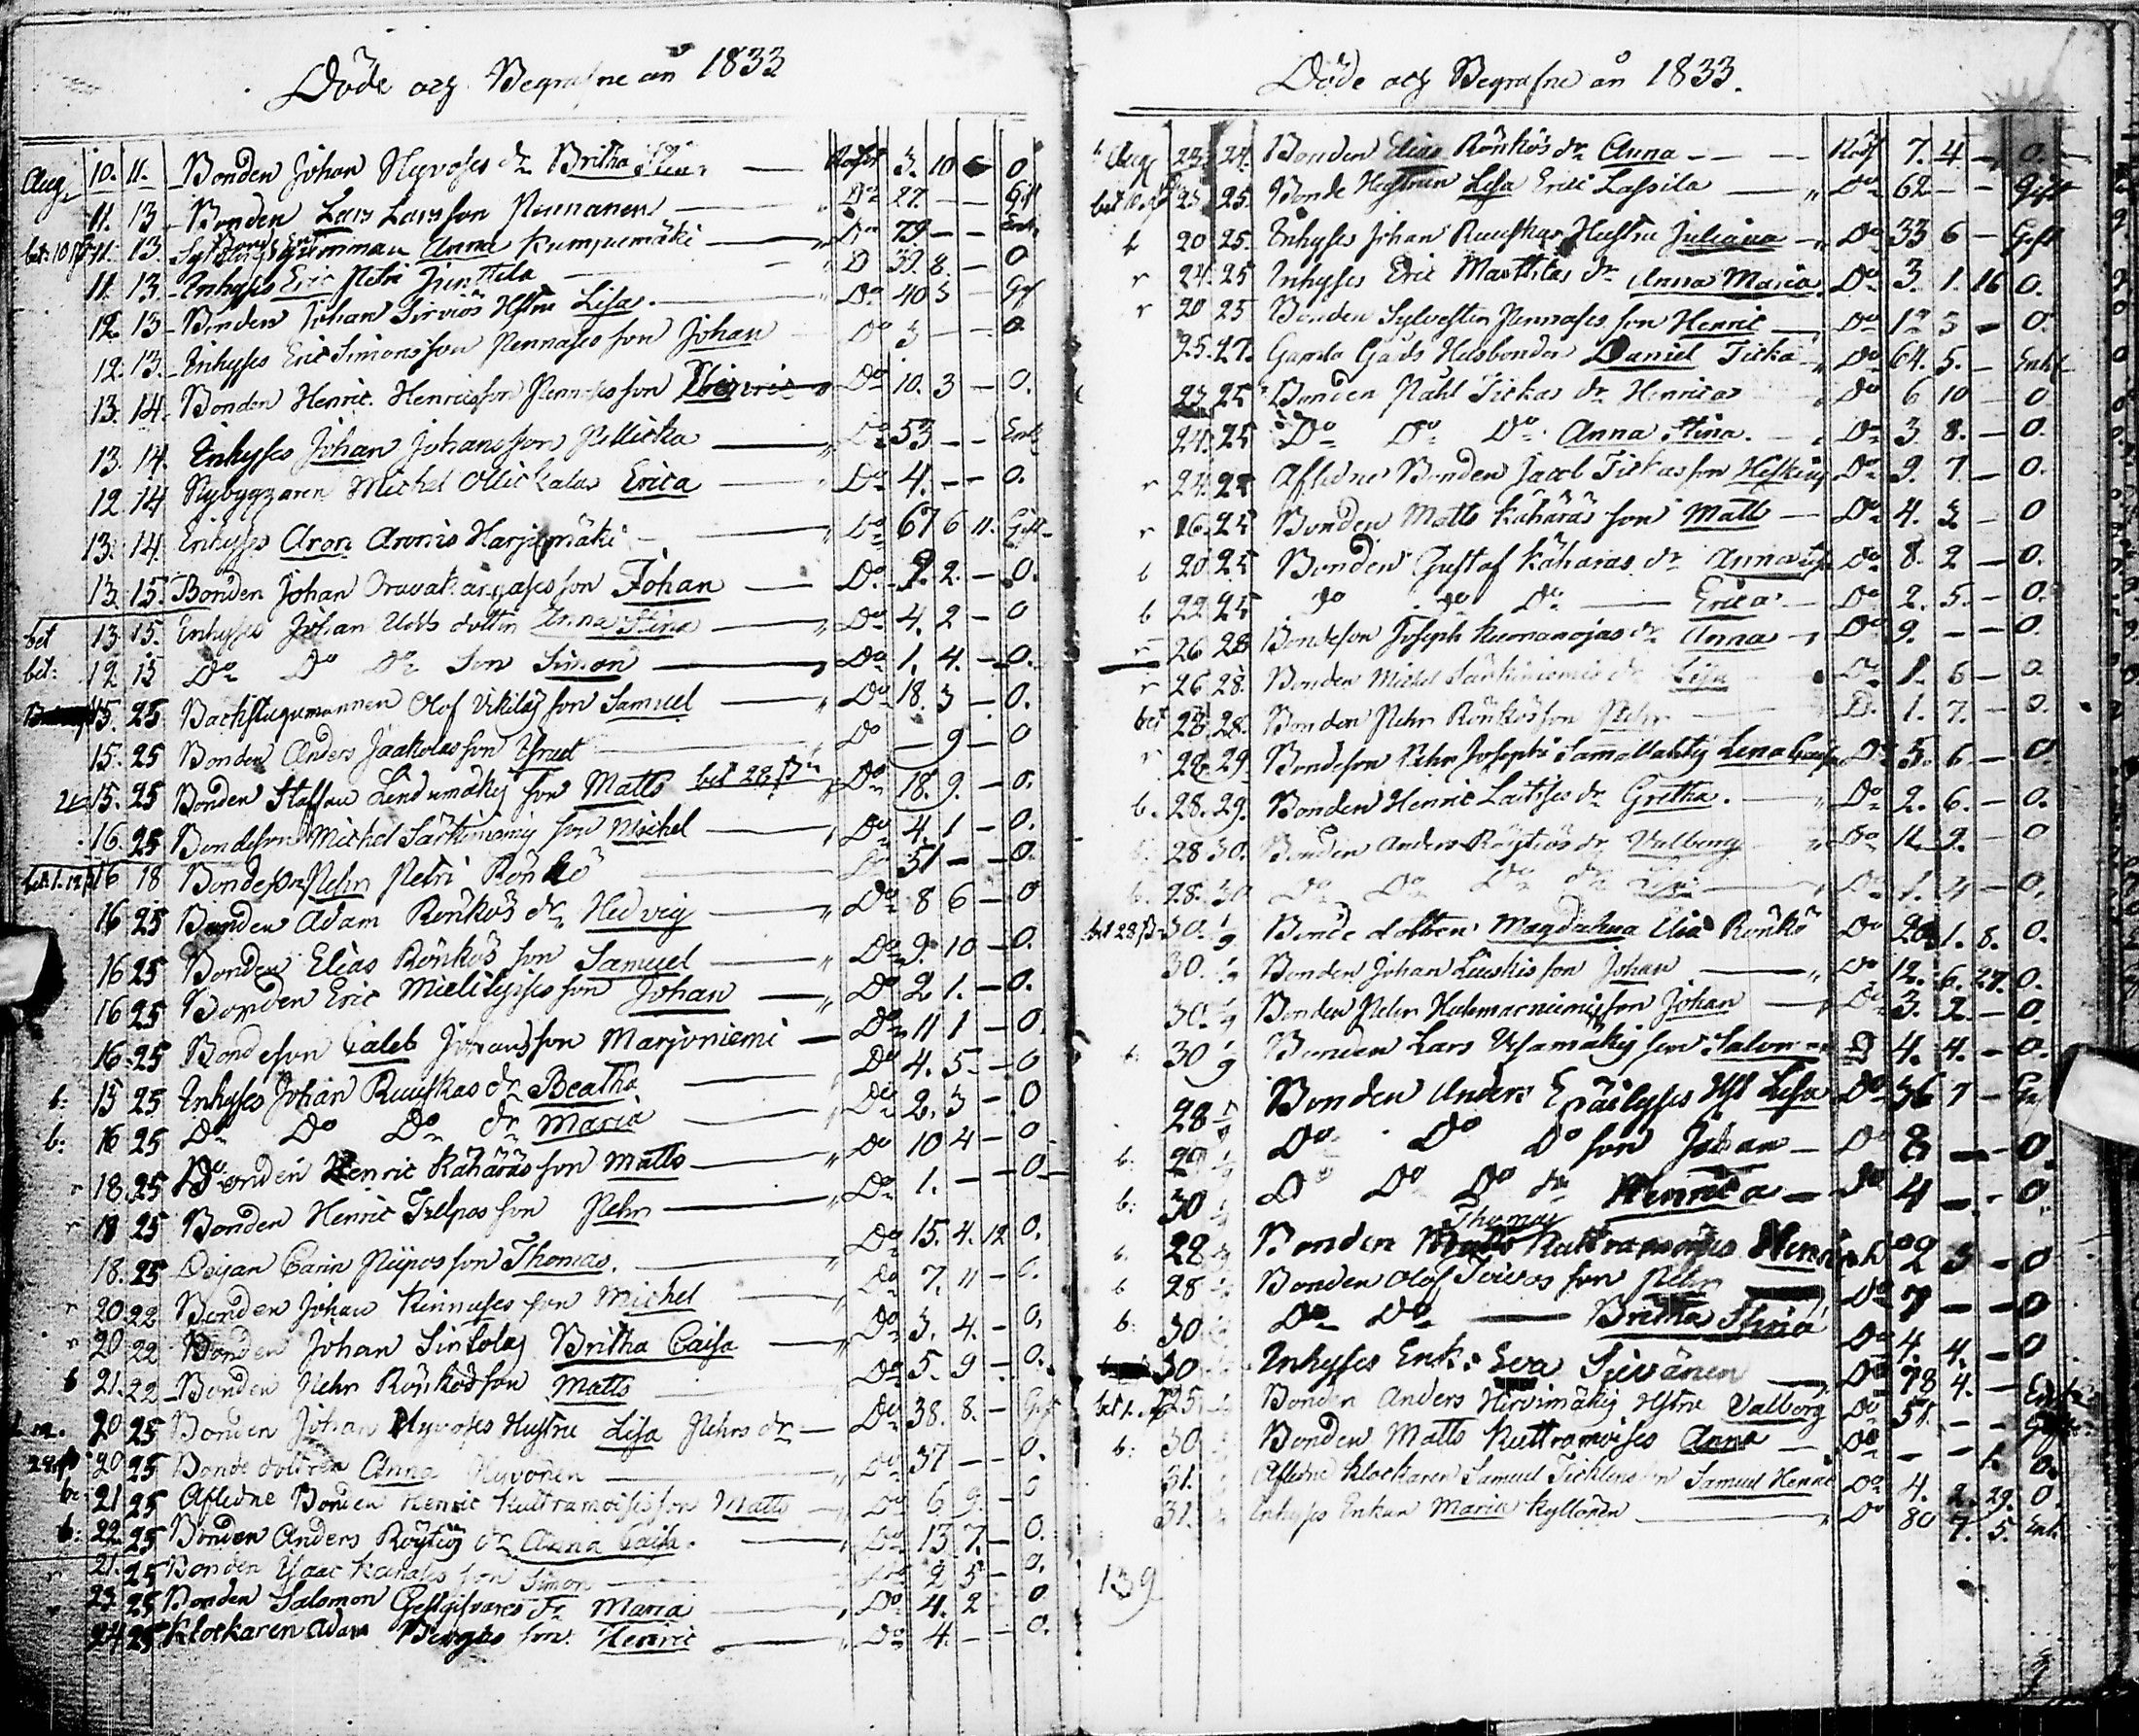 Döde och Begrafne år 1833
Aug. 10. 11. Bonden Johan Hyvoses dr Britha Stina 3. 10 0
11. 13 Bonden Lars Larsson Pennanen Do 27. — — Gift
bet. 13. Anna Kumpumäki Do 79 — — Enk.
11. 13. Inhyses Eric Petri Junttila D 39. 8. — 0
12. 13 Bonden Johan Sirviös Hstru Lisa. Do 40 3 — Gift
12. 13. Inhyses Eric Simonsson Pennases son Johan Do 3 — — 0
13. 14. Bonden Henric Henricsson Pennases son Henric Do 10. 3 — 0.
13. 14. Inhyses Johan Johansson Pellicka Do 53 — — Enk
12 14 Nybyggaren Michel Ollickalas Erica Do 4. — — 0.
13. 14. Inhyses Aron Aronis Harjumäki Do 67 6 11. Gift
13. 15. Bonden Johan Oravakangases son Johan Do 9. 2. — 0.
bet 13. 15. Enhyses Johan Utts dotter Anna Stina Do 4. 2 — 0
bet: 12 15 Do Do Do Son Simon Do 1. 4. — 0.
15. 25 Backstugumannen Olof Vikilas son Samuel Do 18. 3 — 0.
15. 25 Bonden Anders Jaakolas son Do — 9 — 0
15. 25 Bonden Staffan Lindumäkis son Matts bet 28 Do 18. 9. — 0.
16. 25 Bondeson Michel Särkiniemis son Michel Do 4. 1 — 0.
bet. 16 18 Bondeson Pehr Petri Rönkö Do 31 — — 0.
16 25 Bonden Adam Rönkös dr Hedvig Do 8 6 — 0
16 25 Bonden Elias Rönkös son Samuel Do 9. 10 — 0.
16 25 Bonden Eric Mielityises son Johan Do 2 1. — 0.
16. 25 Bondeson Caleb Johansson Marjoniemi Do 11 1 — 0.
b: 15 25 Inhyses Johan Ruuskas dr Beatha Do 4. 5. — 0
b: 16 25 Do Do Do dr Maria Do 2. 3 — 0
r 18. 25 Bonden Henric Kähäräs son Matts Do 10 4 — 0
r 18 25 Bonden Henric Tulpos son Pehr Do 1. — — 0
18. 25 Pigan Carin Piipos son Thomas. Do 15. 4. 12 0.
r 20. 22 Bonden Johan Kinnuses son Michel Do 7. 11 — 0.
r 20 22 Bonden Johan Sirkolas Britha Caisa Do 3. 4. — 0.
b 21. 22 Bonden Pehr Rönkös son Matts Do 5. 9 — 0.
20 25 Bonden Johan Hyvoses Hustru Lisa Pehrs dr Do 38. 8. — Gift
20 25 Bonde dottren Anna Hyvönen Do 37 — — 0.
b: 21 25 Aflidne Bonden Henric Kuttramoises son Matts Do 6 9. — 0
b: 22. 25 Bonden Anders Röytiös dr Anna Caisa. Do 13 7. — 0.
21. 25 Bonden Isaac Kanases son Simon Do 2 5 — 0.
23. 25 Bonden Salomon Gestgifvares dr Maria Do 4. 2 0
24 25 Klockaren Adam Bergs son Henric Do 4. — — 0.
Döde och Begrafne år 1833.
Aug 23. 24. Bonden Elias Rönkös dr Anna Röt 7. 4 — 0.
bet 23 25. Bonde Hustrun Lisa Eric Lassila Do 62 — — Gift
b 20 25. Inhyses Johan Ruuskas Hustru Juliana Do 33 6 — Gift
r 24. 25 Inhyses Eric Marttilas dr Anna Maria Do 3. 1. 16 0.
r 20 25 Bonden Sylvester Pennases son Henric Do 12 3 — 0.
25. 27. Gamla Gårds Husbonden Daniel Ticka Do 64. 5. — Enkl
23 25 Bonden Påhl Tickas dr Henrica Do 6 10 — 0
24. 25 Do Do Do Anna Stina. Do 3 8. — 0.
r 24. 25 Aflidne Bonden Jacob Tickas son Do 9. 7. — 0.
r 16 25 Bonden Matts Kähäräs son Matts Do 4. 3 — 0
b 20. 25 Bonden Gustaf Kähäräs dr Anna Do 8. 2 — 0.
b 22. 25 Do Do Do Erica Do 2. 5. — 0.
r 26 28 Bondeson Joseph Kuonanojas dr Anna Do 9. — — 0.
r 26 28. Bonden Michel Särkiniemis dr Lisa Do 1. 6 — 0
bet 28. Bonden Pehr Rönkös son Pehr D. 1. 7. — 0.
r 28 29. Bondeson Pehr Josephs Lena Caisa Do 5. 6. — 0.
b. 28. 29. Bonden Henric Laitises dr Gretha. Do 2. 6. — 0.
b. 28 30. Bonden Anders Röytiös dr Valborg Do 11. 9. — 0
b. 28. 30 Do Do Do dr Do 1. 4 — 0.
bet 28 30. 1/9 Bonde dottren Magdalena Elias Rönkö Do 20. 1. 8. 0.
30. 1/9 Bonden Johan Liuskis son Johan Do 12. 6. 27. 0.
30. 1/9 Bonden Pehr Hukmarniemis son Johan Do 3. 2. — 0.
30 1/9 Bonden Lars Ulamäkis son Salomon D 4. 4. — 0.
28 1/9 Bonden Anders Eräilyses Hst Lisa Do 36 7 — Gif
b: 29 1/9 Do Do Do son Johan Do 8 — — 0.
b: 30 1/9 Do Do Do dr Henrica Do 4 — — 0.
Thomas
28 1/9 Bonden Kuttramoises Do 2 3 — 0
b 28 1/9 Bonden Olof Toivos son Pehr Do 7 — — 0
b: 30 Do Do Britha Stina Do 4. 4. — 0
30 Inhyses Enk: Eva Sievänen Do 78 4. — Enk.
bet 25 Bonden Anders Hirvimäkis Hstru Valborg Do 51. — — Gift
b: 30 Bonden Matts Kuttramoises Anna Do — — 1. 0.
31. Aflidne Klockaren Samuel Ticklens son Samuel Henric Do 4. 2. 29. 0.
31. Inhyses Enkan Maria Kyllönen Do 80 7. 5. Enk
139